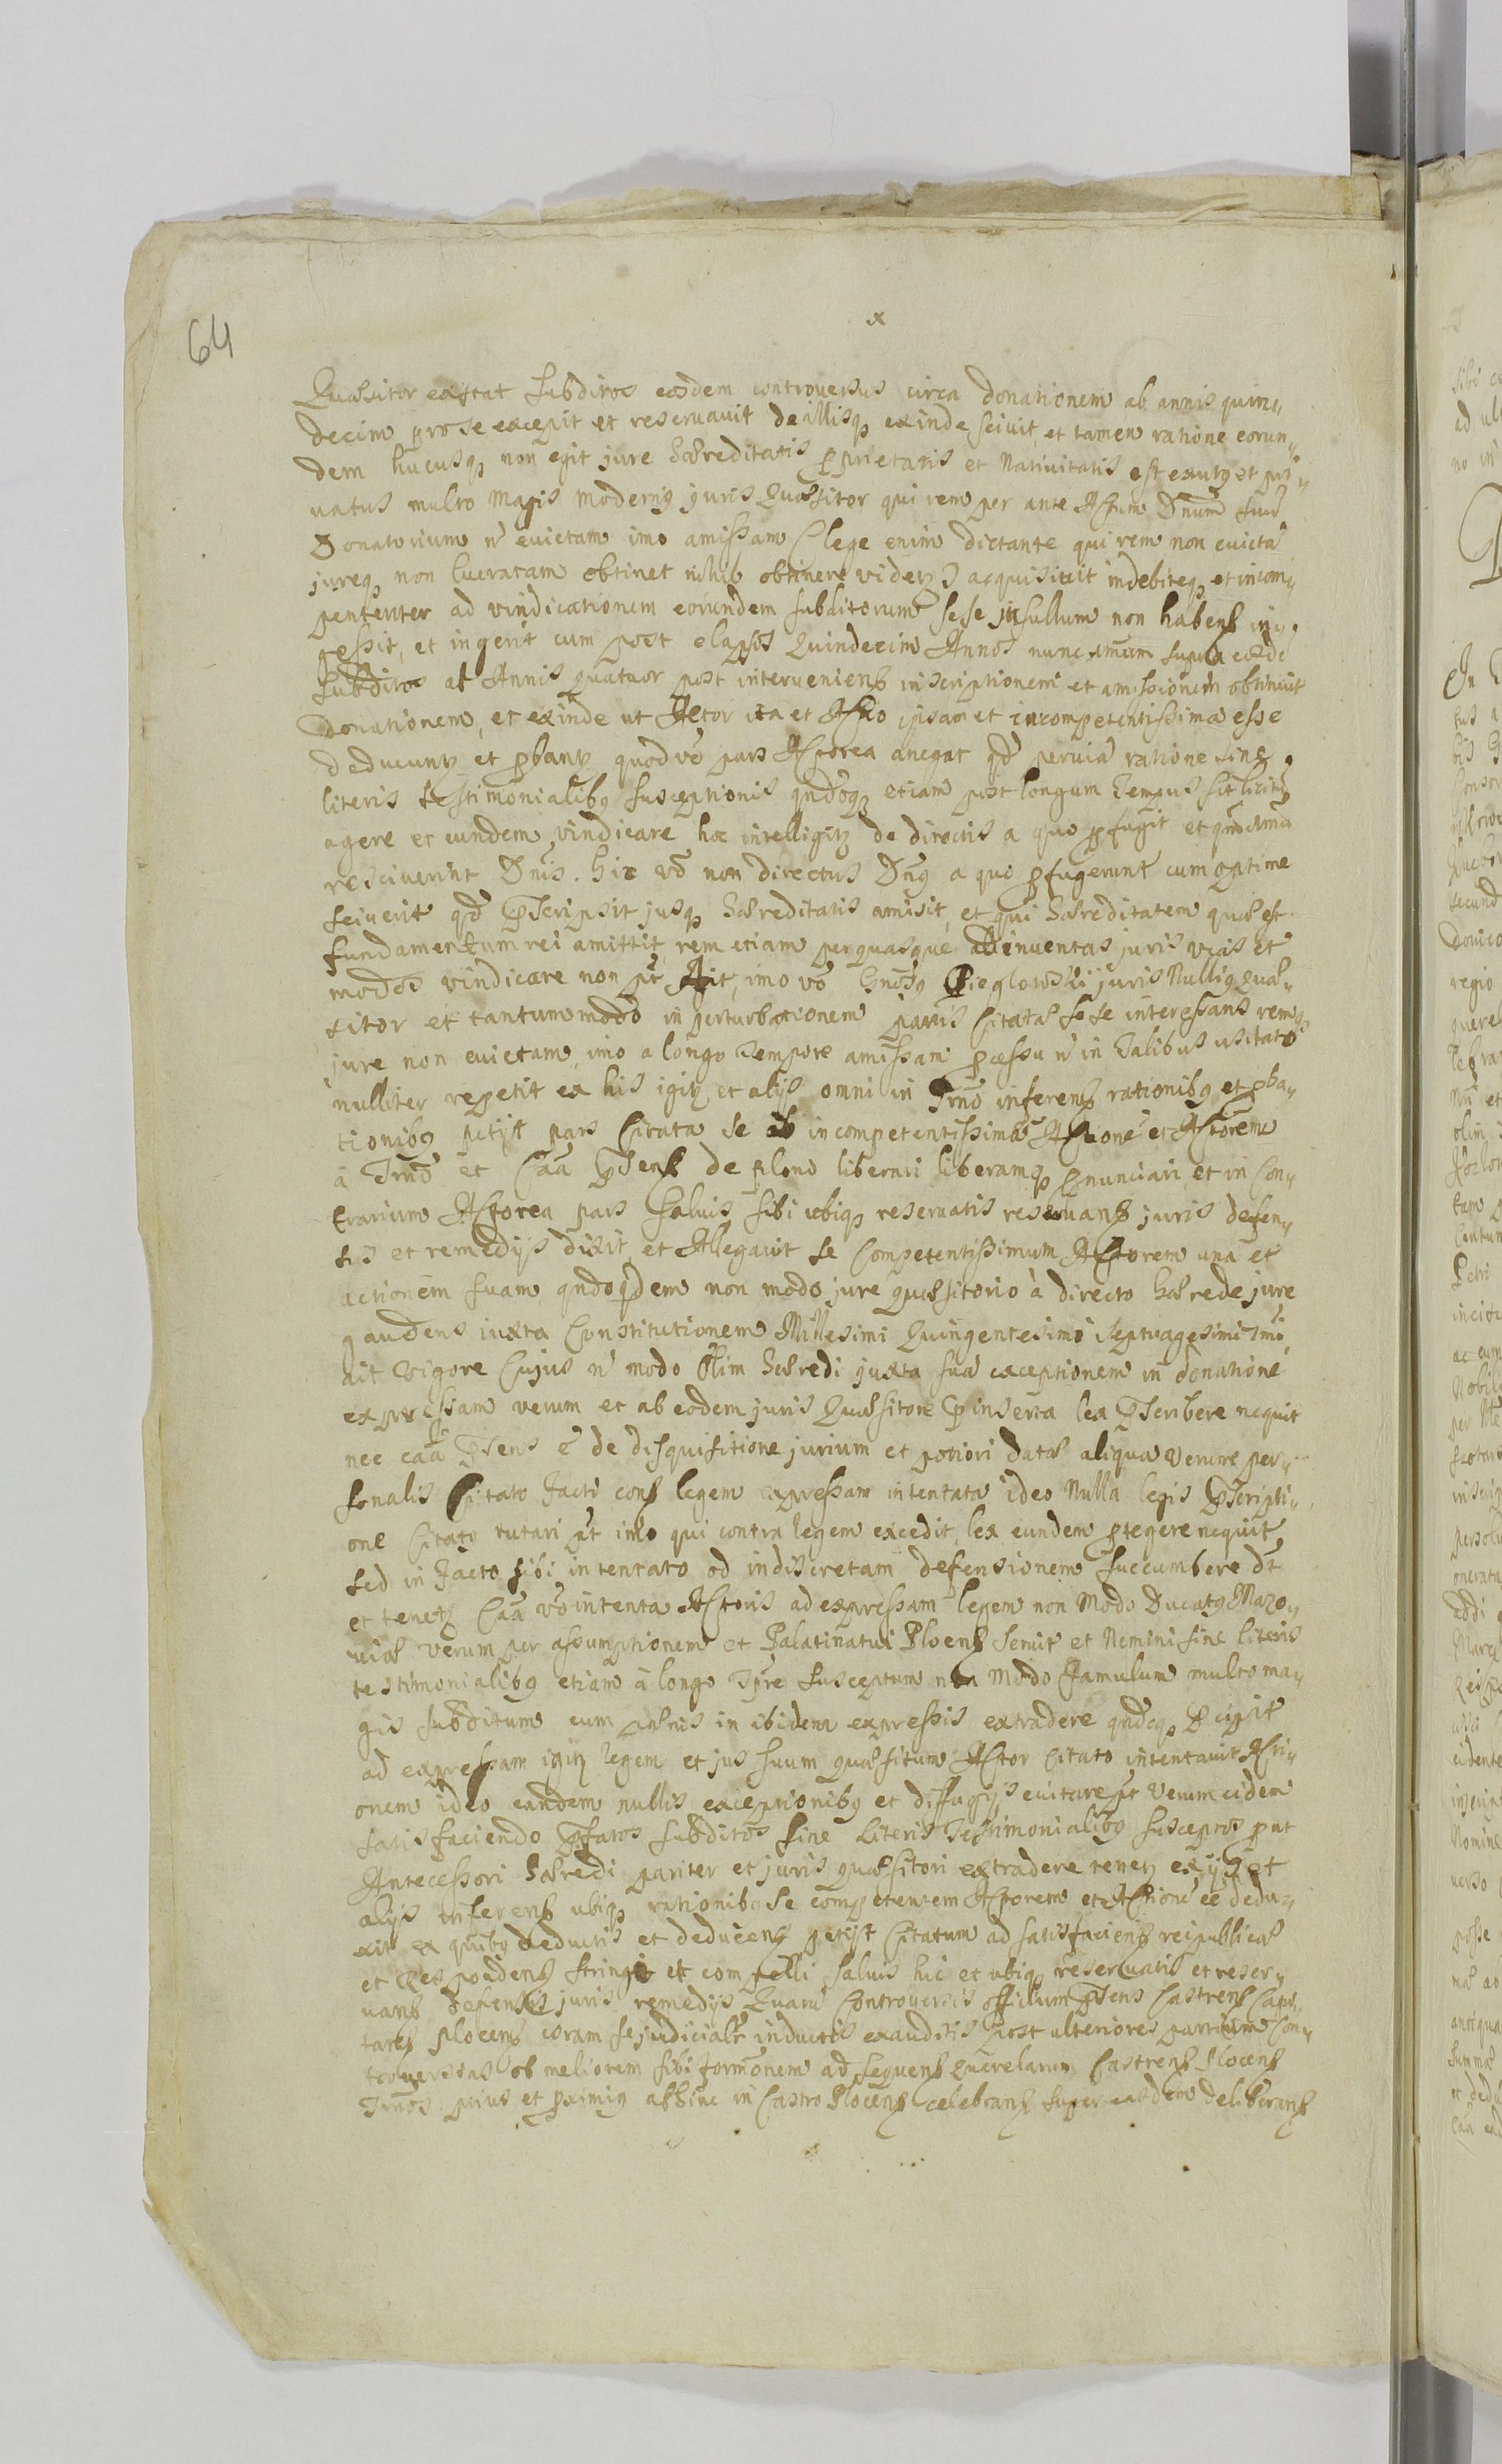 64
x
Quæsitor extat subditos eosdem controversus circa donationem ab annis quin„
decim pro se excepit et reservavit de illisq₃ exinde scivit et tamen ratione eorun„
dem hucusq₃ non egit jure Hæreditatis pprietatis et Nativitatis est exutꝯ et pri„
vatus multo magis modernꝯ juris Quæsitor qui rem per ante Actum Dnum suu
Donatorium n evictam imo amissam (lege enim dictante qui rem non evictã
jureq₃ non lucratam obtinet nihil obtinere videtꝫ) acquisivit indebiteq₃ et incom„
petenter ad vindicationem eorundem subditorum sese jus ullum non habens in„
gessit, et ingerit cum post elapsos Quindecim Annos nunc supra eosdẽ
subditos ab Annis quatuor post interveniens inscriptionem et amissionem obtinuit
donationem, et exinde ut Actor ita et Actio ipsa et incompetentissima esse
deducuntꝫ et pbantꝫ quod vẽ pars Actorea anegat qd ratione sine
literis testimonialibꝯ susceptionis qndoq₃ etiam post longum tempus sit licitũ
agere et eundem vindicare hoc intelligitꝫ de directis a quo pfugit et
resciverint Dnis. hic vẽ non directus Dnꝯ a quo pfugerunt cum optime
sciverit qd pscripsit jusq₃ Hæreditatis amisit, et qui Hæreditatem quæ est
fundamentum rei amittit, rem etiam per quasque adinventas juris vias et
modos vindicare non pt, imo vẽ Gnosꝯ Pieglowski juris Nulliꝯ Quæ„
sitor et tantummodo in perturbationem partis Citatæ sese interessans rem
jure non evictam, imo a longo tempore amissam pcessu n in talibus usitato
nulliter repetit ex his igitꝫ et alijs omni in Trno inferens rationibꝯ et pba„
tionibꝯ petijt pars Citata se ab incompetentissima Actione et Actorem
à Trno et Caã psens de plano liberari liberamq₃ pnunciari, et in Con„
trarium Actorea pars salvis sibi ubiq₃ reservatis reservans juris defen„
sis et remedijs dixit et Allegavit se Competentissimum Actorem una et
actionem suam qndoqdem non modo jure quæsitorio à directo hærede jure
gaudens iuxta Constitutionem Millesimi Quingentesimi Septuagesimi
ait vigore Cujus n modo olim Hæredi juxta suã exceptionem in donatione
expressam verum et ab eodem juris Quæsitore p inserta lex pscribere nequit
nec caã psens ẽ de disquisitione jurium et potiori data aliqua verum per„
sonalis Citato facti cons legem expressam intentata ideo Nulla legis pscripti„
one Citatꝯ tutari pt imo qui contra legem excedit, lex eundem ptegere nequit
sed in facto sibi intentato od indiscretam defensionem succumbere dt
et tenetꝫ Caã vẽ intenta Actoris ad expressam legem non Modo Ducatꝯ Mazo„
viæ verum per assumptionem et Palatinatui Plocens servit et Nemini sine literis
testimonialibꝯ etiam à longo tpre susceptum non modo famulum multo ma„
gis subditum cum pænis in ibidem expressis extradere qndoq₃ pcipit
ad expressam igitꝫ legem et jus suum quæsitum Actor Citato intentavit Acti„
onem ideo eandem nullis exceptionibꝯ et diffugijs evitare pt verum eidem
satisfaciendo pfatos subditos sine Literis Testimonialibꝯ susceptos put
Antecessori Hæredi pariter et juris quæsitori extradere tenetꝫ ex ijs et
alijs inferens ubiq₃ rationibꝯ se competentem Actorem et Actione ee dedu„
xit ex quibꝯ deductis et deducens petijt Citatum ad satisfaciens reipublicæ
et respondens stringi et compelli salvis hic et ubiq₃ reservatis et reser„
vans defensis juris remedijs Quarũ Controversiis officium psens Castrens Capi„
tans Plocens coram se judicialr inductis exauditis post ulteriores partium Con„
troversias ob meliorem sibi formonem ad sequens Querelarum Castrens Plocens
Trnos prius et pximiꝯ abhinc in Castro Plocens celebrans super easdem deliberans